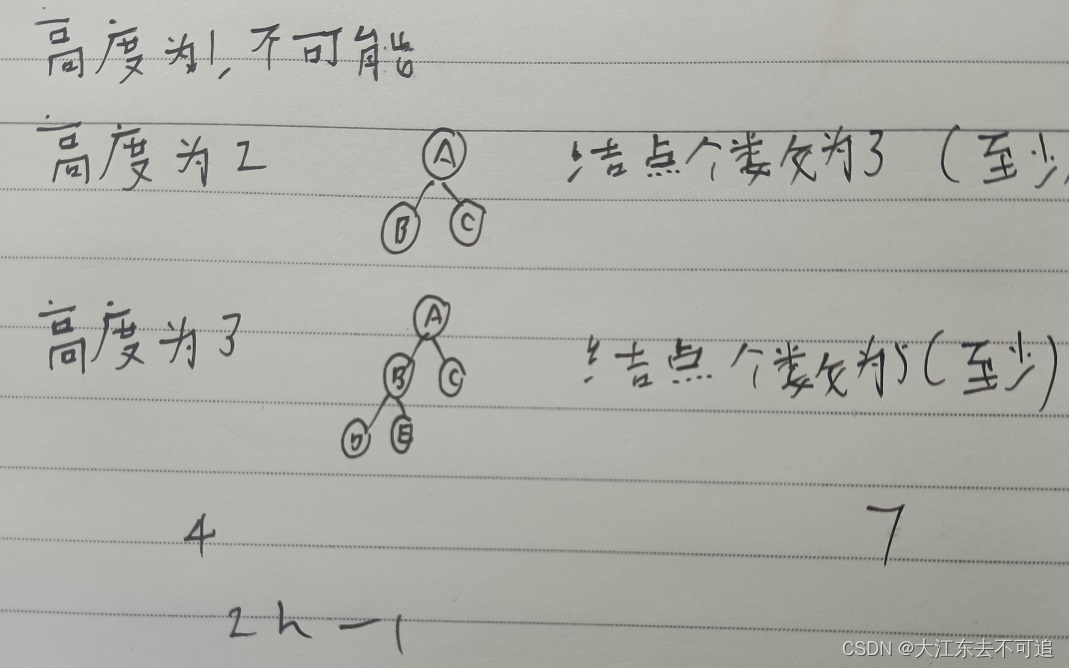 高度为1,不可能
高度为2 A 结点个数为3 (至少
B C
高度为3 A 结点个数为5(至少)
B C
D E
4 7
2h-1
CSDN @大江东去不可追